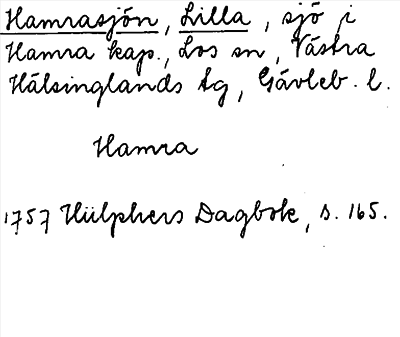 Hamrasjön, Lilla, sjö i
Hamra kap., Los sn, Västra
Hälsinglands tg, Gävleb. l.
Hamra
1757 Hülphers Dagbok, s. 165.